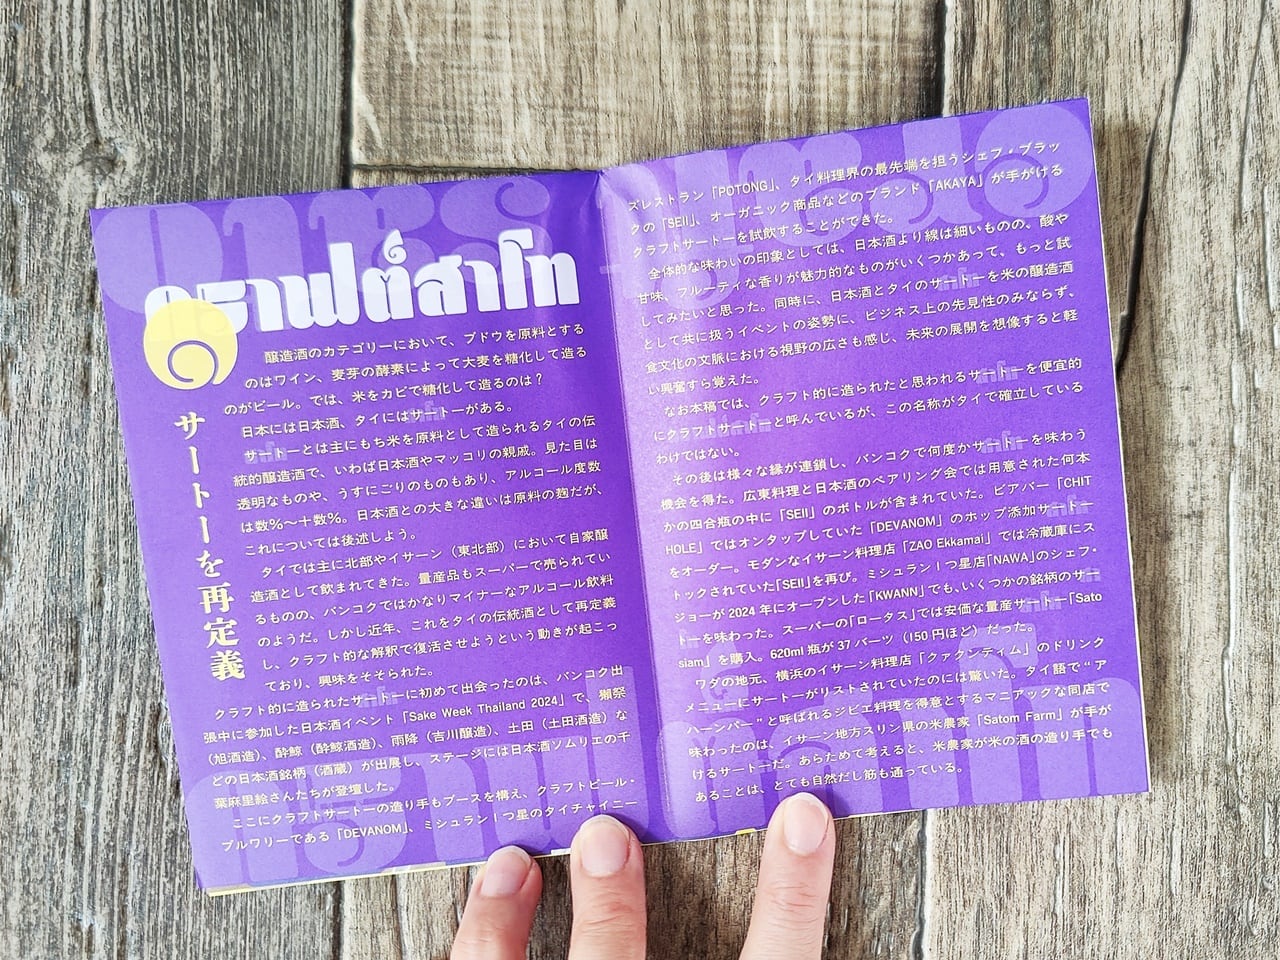 คราฟต์สาโท
サートーを再定義
醸造酒のカテゴリーにおいて、ブドウを原料とする
のはワイン、麦芽の酵素によって大麦を糖化して造る
のがビール。では、米をカビで糖化して造るのは？
日本には日本酒、タイにはサートーがある。
サートーとは主にもち米を原料として造られるタイの伝
統的醸造酒で、いわば日本酒やマッコリの親戚。見た目は
透明なものや、うすにごりのものもあり、アルコール度数
は数%〜十数%。日本酒との大きな違いは原料の麹だが、
これについては後述しよう。
タイでは主に北部やイサーン（東北部）において自家醸
造酒として飲まれてきた。量産品もスーパーで売られてい
るものの、バンコクではかなりマイナーなアルコール飲料
のようだ。しかし近年、これをタイの伝統酒として再定義
し、クラフト的な解釈で復活させようという動きが起こっ
ており、興味をそそられた。
クラフト的に造られたサートーに初めて出会ったのは、バンコク出
張中に参加した日本酒イベント「Sake Week Thailand 2024」で、獺祭
（旭酒造）、酔鯨（酔鯨酒造）、雨降（吉川醸造）、土田（土田酒造）な
どの日本酒銘柄（酒蔵）が出展し、ステージには日本酒ソムリエの千
葉麻里絵さんたちが登壇した。
ここにクラフトサートーの造り手もブースを構え、クラフトビール・
ブルワリーである「DEVANOM」、ミシュラン1つ星のタイチャイニー
ズレストラン「POTONG」、タイ料理界の最先端を担うシェフ・ブラッ
クの「SEII」、オーガニック商品などのブランド「AKAYA」が手がける
クラフトサートーを試飲することができた。
全体的な味わいの印象としては、日本酒より線は細いものの、酸や
甘味、フルーティな香りが魅力的なものがいくつかあって、もっと試
してみたいと思った。同時に、日本酒とタイのサートーを米の醸造酒
として共に扱うイベントの姿勢に、ビジネス上の先見性のみならず、
食文化の文脈における視野の広さも感じ、未来の展開を想像すると軽
い興奮すら覚えた。
なお本稿では、クラフト的に造られたと思われるサートーを便宜的
にクラフトサートーと呼んでいるが、この名称がタイで確立している
わけではない。
その後は様々な縁が連鎖し、バンコクで何度かサートーを味わう
機会を得た。広東料理と日本酒のペアリング会では用意された何本
かの四合瓶の中に「SEII」のボトルが含まれていた。ビアバー「CHIT
HOLE」ではオンタップしていた「DEVANOM」のホップ添加サートー
をオーダー。モダンなイサーン料理店「ZAO Ekkamai」では冷蔵庫にス
トックされていた「SEII」を再び。ミシュラン1つ星店「NAWA」のシェフ・
ジョーが 2024 年にオープンした「KWANN」でも、いくつかの銘柄のサ
ートーを味わった。スーパーの「ロータス」では安価な量産サートー「Sato
siam」を購入。620ml 瓶が 37 バーツ（150 円ほど）だった。
ワダの地元、横浜のイサーン料理店「クァクンティム」のドリンク
メニューにサートーがリストされていたのには驚いた。タイ語で“ア
ハーンパー”と呼ばれるジビエ料理を得意とするマニアックな同店で
味わったのは、イサーン地方スリン県の米農家「Satom Farm」が手が
けるサートーだ。あらためて考えると、米農家が米の酒の造り手でも
あることは、とても自然だし筋も通っている。